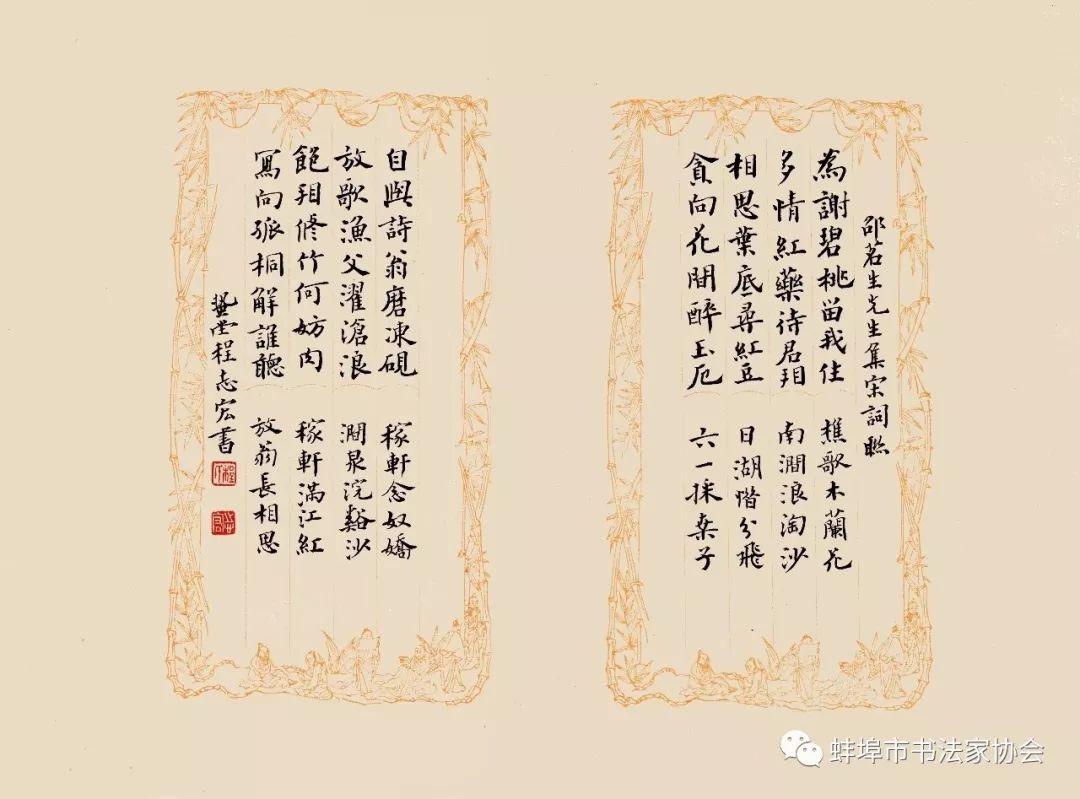 邵茗生先生集宋詞聯
為謝碧桃留我住 樵歌木蘭花
多情紅藥待君看 南澗浪淘沙
相思葉底尋紅豆 日湖惜分飛
貪向花間醉玉卮 六一採桑子
自與詩翁磨凍硯 稼軒念奴嬌
放歌漁父濯滄浪 澗泉浣谿沙
飽看修竹何妨肉 稼軒滿江紅
寫向孤桐解誰聽 放翁長相思
堂程志宏書
蚌埠市书法家协会